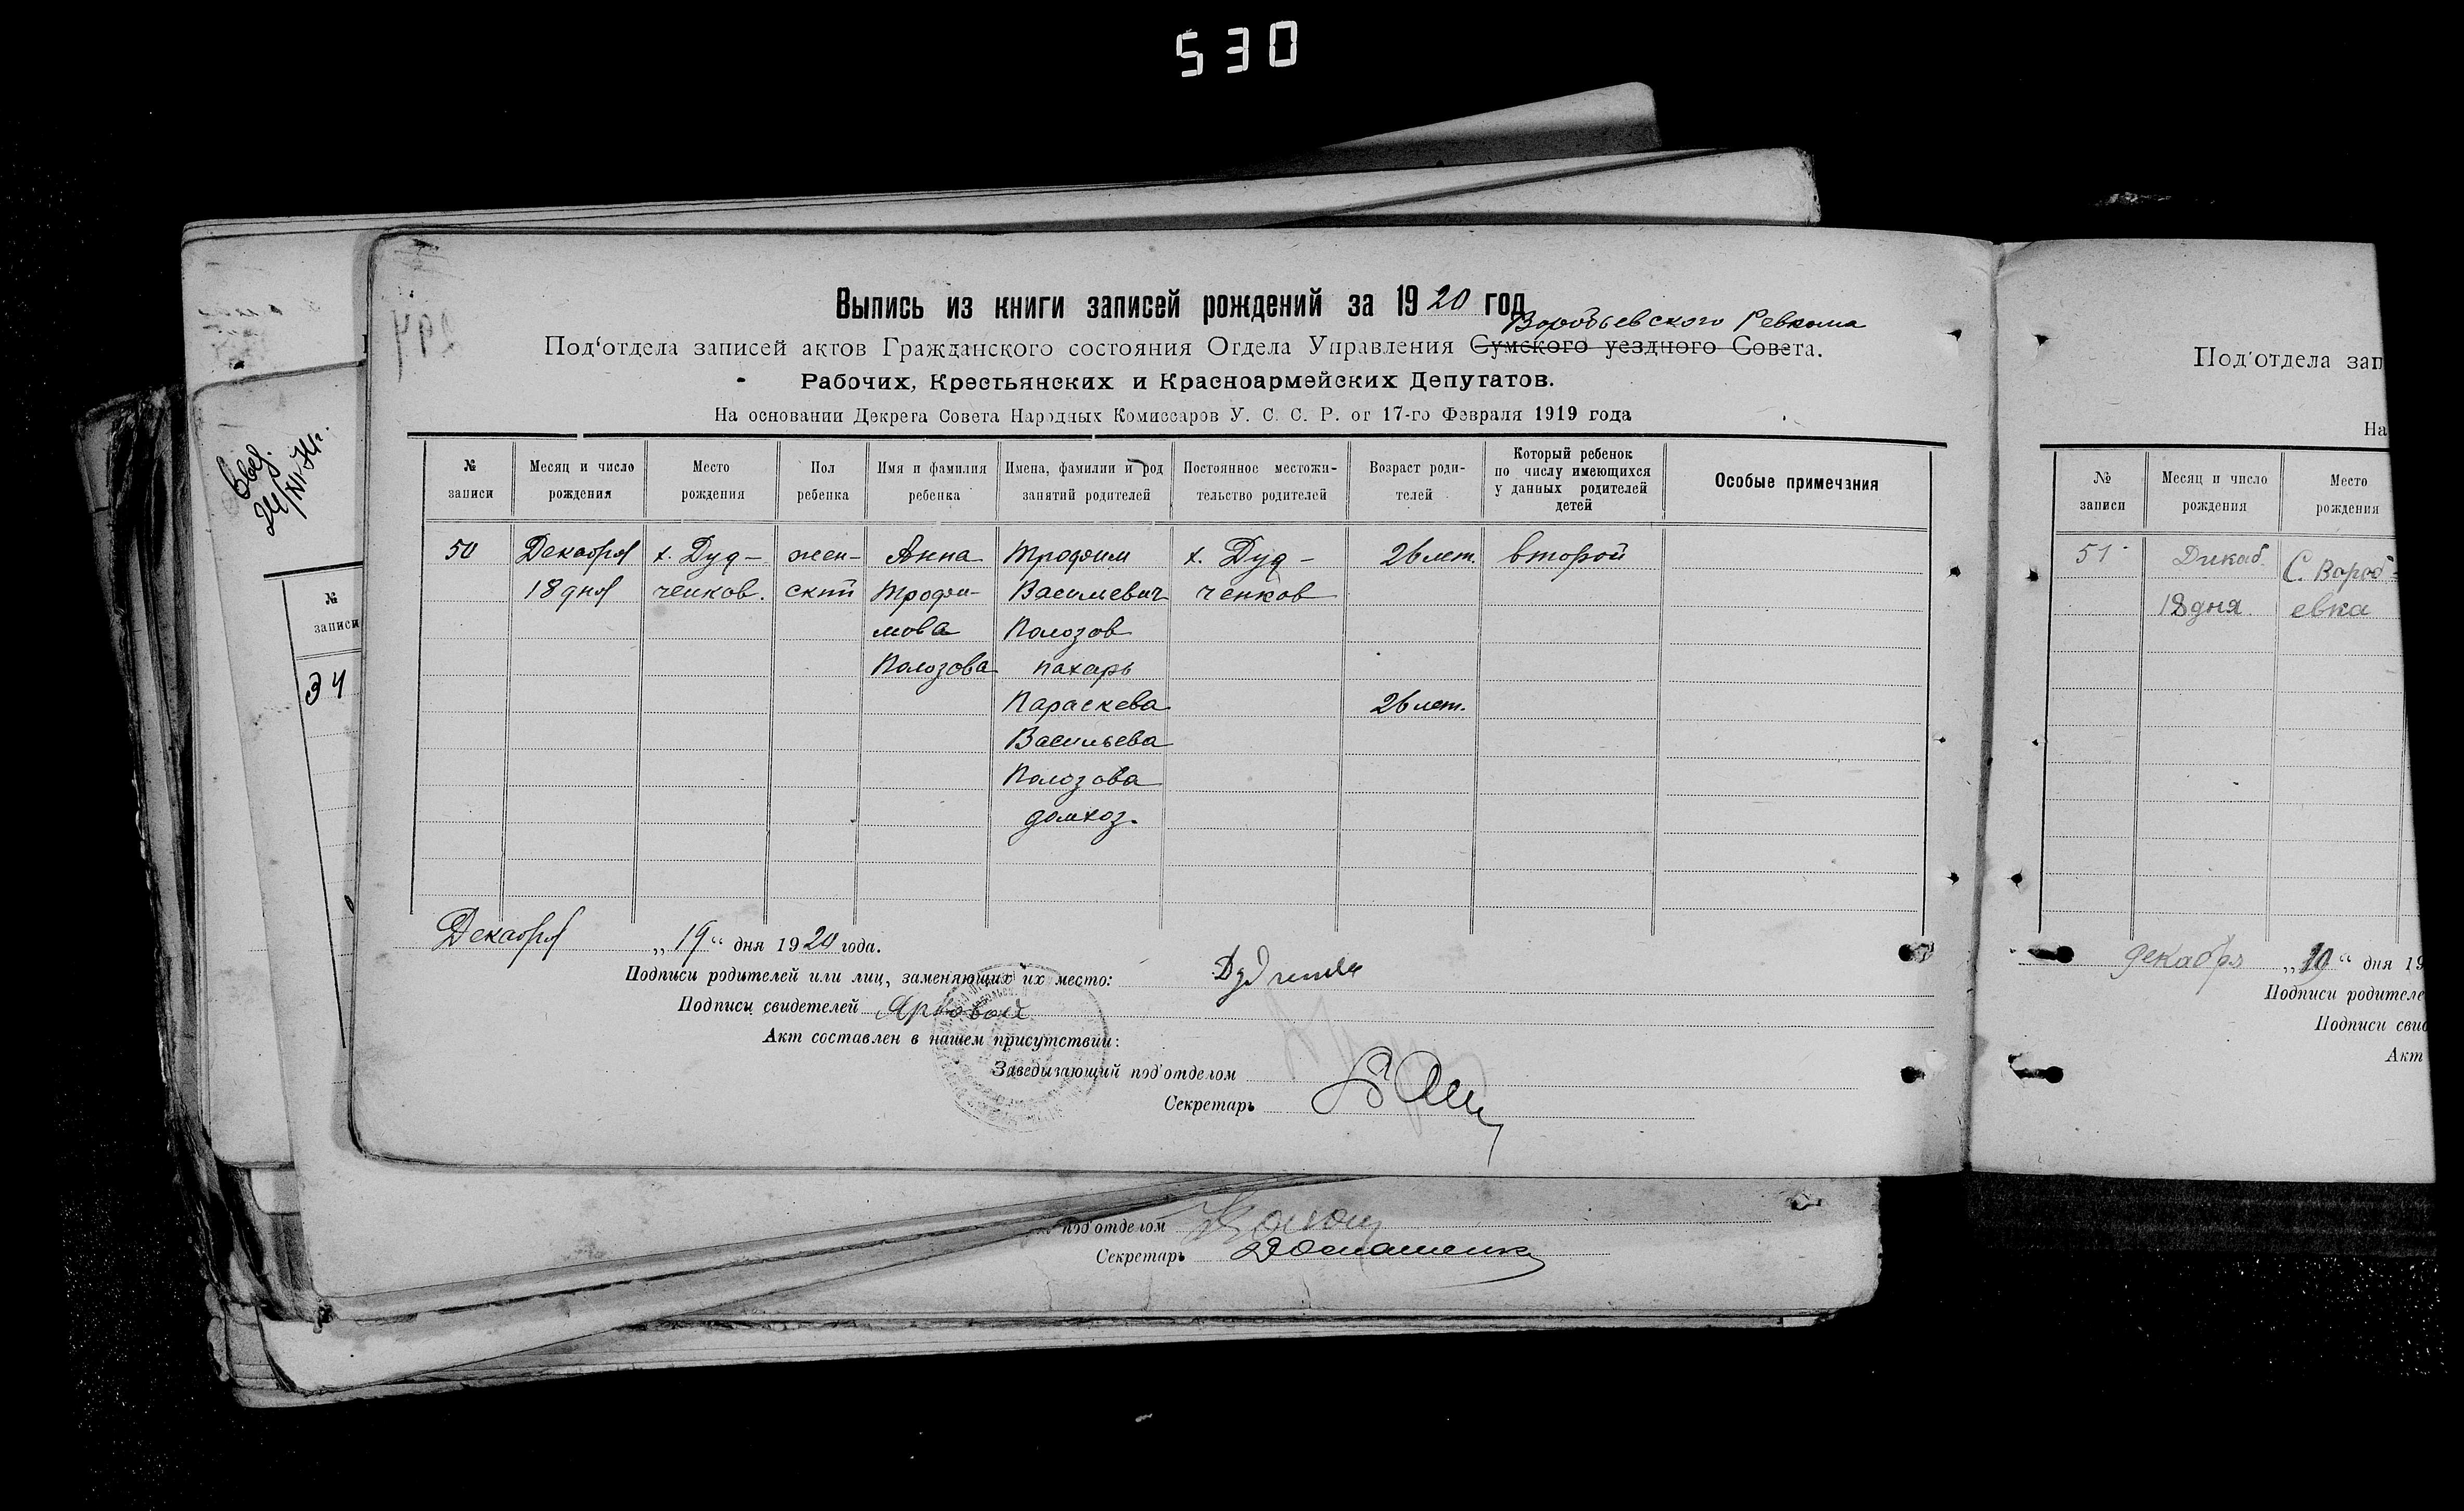 530
Выпись из книги записей рождений за 1920 год
Воробьевского Ревкома
Под'отдела записей актов Гражданского состояния Отдела Управления Сумского уездного Совета.
Рабочих, Крестьянских и Красноармейских Депутатов.
На основании Декрета Совета Народных Комиссаров У. С. С. Р. от 17-го Февраля 1919 года
№ записи
Месяц и число рождения
Место рождения
Пол ребенка
Имя и фамилия ребенка
Имена, фамилии и род занятий родителей
Постоянное местожи-
тельство родителей
Возраст роди-
телей
Который ребенок
по числу имеющихся
у данных родителей
детей
Особые примечания
50 Декабря х. Дуд- жен- Анна Трофим х. Дуд- 26 лет. второй
18 дня ченков. ский Трофи- Васильевич ченков
мова Полозов
Полозова пахарь
Параскева 26 лет.
Васильева
Полозова
домхоз.
Декабря „19“ дня 1920 года.
Подписи родителей или лиц, заменяющих их место:
Подписи свидетелей
Акт составлен в нашем присутствии:
Заведывающий под'отделом
Секретарь
под'отделом
Секретарь
294
№
записи
34
Под'отдела зап
На
№ записи
Месяц и число рождения
Место рождения
51 Дикаб. С. Вороб-
18 дня евка
декабря дня 19
Подписи родителе
Подписи свид
Акт